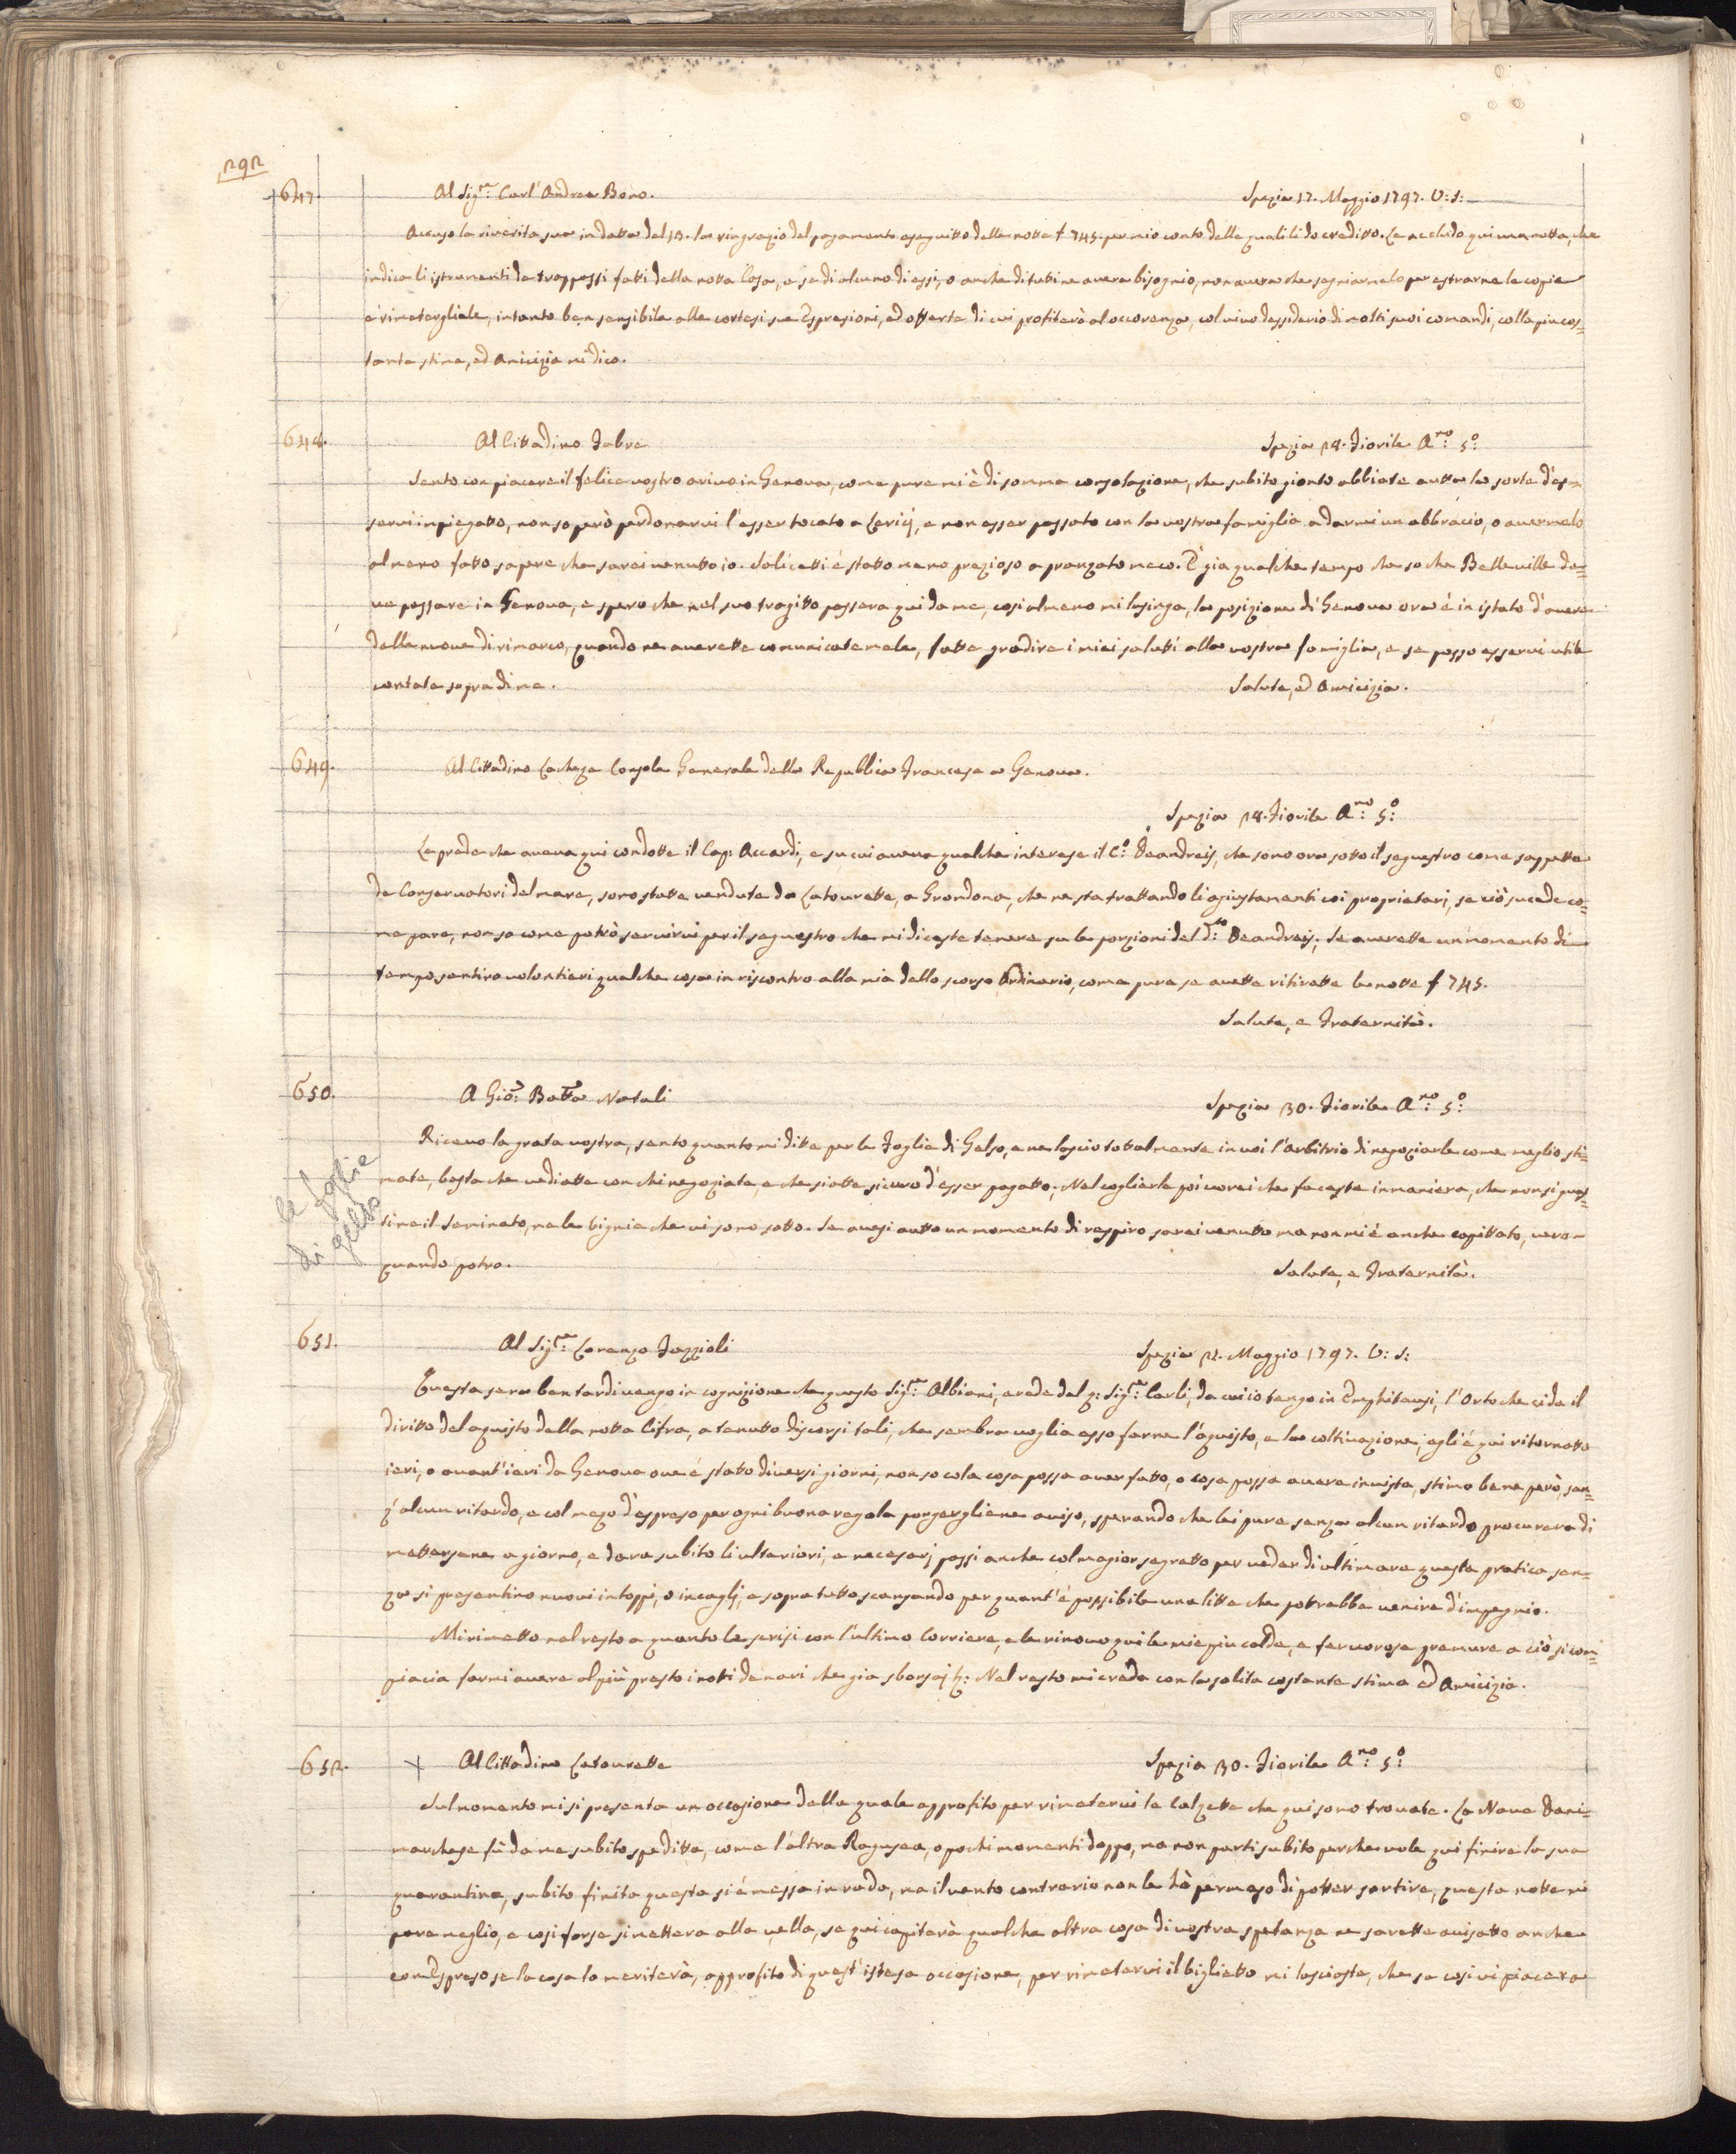 292
647. Al Sig.re Carl'Andrea Bono. Spezia 17. Maggio 1797. V: S:
Accuso la riverita sua in datta del 13. la ringrazio del pagamento eseguitto delle notte f 745. per mio conto delle quali li do creditto. Le accludo qui una notta, che
indica li istrumenti de trappassi fatti della notta Cosa, e se di alcuno di essi, o anche di tutti ne avera bisognio, non avera che segniarmelo per estrarne le copie
e rimetergliele, intanto ben sensibile alle cortesi sue Espresioni, ed offerte di cui profiterò al occorenza, col vivo dessiderio di molti suoi comandi, colla più cos=
tante stima, ed Amicizia mi dico.
648. Al Cittadino Fabre Spezia 28. Fiorile A.no 5.o
Sento con piacere il felice vostro arivo in Genova, come pure mi è di somma consolazione, che subito gionto abbiate autta la sorte d'es=
servi inpiegatto, non so però perdonarvi l'esser tocato a Lerici, e non esser passato con la vostra famiglia a darmi un abbracio, o avermelo
almeno fatto sapere che sarei venutto io. Salicetti é statto meno prezioso a pranzato meco. É gia qualche tempo che so che Belleville de=
ve passare in Genova, e spero che nel suo tragitto passera qui da me, cosi almeno mi lusinga, la posizione di Genova ora é in istato d'avere
delle nuove di rimarco, quando ne averette comunicatemele, fatte gradire i miei saluti alla vostra famiglia, e se posso esservi utile
contate sopra di me. Salute, ed Amicizia.
649. Al Cittadino Lacheze Console Generale della Republica Francese a Genova.
Spezia 28. Fiorile A.no 5.o
Le prede che aveva qui condotte il Cap: Accardi, e su cui aveva qualche interese il C.o Deandreis, che sono ora sotto il sequestro come sappette
de Conservatori del mare, sono statte vendute da Latourette, a Grondona, che ne sta trattando li agiustamenti coi proprietari, se ciò sucede co=
me pare, non so come potrò servirvi per il sequestro che mi diceste tenere su le porzioni del d.to Deandreis, Se averette un momento di
tempo sentiro volontieri qualche cosa in riscontro alla mia dello scorso Ordinario, come pure se avette ritiratte le notte f 745.
Salute, e Fraternità.
650. A Gio: Batta Natali Spezia 30. Fiorile A.no 5.o
Ricevo la grata vostra, sento quanto mi ditte per le Foglie di Gelso, e ne lascio tottalmente in voi l'arbitrio di negoziarle come meglio sti=
le foglie
mate, basta che vediatte con chi negoziate, e che siatte sicuro d'esser pagatto. Nel coglierle poi vorei che faceste in maniera, che non si guas=
di gelso
tino il Seminato, ne le vignie che vi sono sotto. Se avesi autto un momento di respiro sarei venutto ma non mi é anche capittato, vero
quando potro. Salute, e Fraternità.
651. Al Sig.re Lorenzo Fazzioli Spezia 21. Maggio 1797. V: S:
Questa sera ben tardi vengo in cognizione che questo Sig.re Albiani, erede del q: Sig.re Carli, da cui io tengo in Emphiteusi, l'Orto che ci da il
diritto del aquisto della notta Cifra, a tenutto discorsi tali, che sembra voglia esso farne l'aquisto, e la coltivazione, egli é qui ritornatto
ieri, o avant'ieri da Genova ove é statto diversi giorni, non so cola cosa possa aver fatto, o cosa possa avere in vista, stimo bene però, sen=
z'alcun ritardo, e col mezo d'espreso per ogni buona regola porgergliene aviso, sperando che lei pure senza alcun ritardo procurera di
mettersene a giorno, e dare subito li ulteriori, e necesarj passi anche col magior segretto per veder di ultimare questa pratica sen=
za si presentino nuovi intoppi, o incaglj, e sopra tutto scansando per quant'é possibile una litte che potrebbe venire d'impegnio.
Mi rimetto nel resto a quanto le scrisi con l'ultimo Corriere, e le rinovo qui le mie piu calde, e fervorose premure a ciò si com=
piacia farmi avere al più presto i notti denari che gia sborsaj &: Nel resto mi creda con la solita costante stima ed Amicizia.
652. + Al Cittadino Latourette Spezia 30. Fiorile A.no 5.o
Sul momento mi si presenta un occasione della quale approfito per rimetervi le Calzette che qui sono trovate. La Nave Dani=
marchese fù da me subito speditta, come l'altra Ragusea, o pochi momenti doppo, ma non parti subito perche vole qui finire la sua
quarantina, subito finita questa si é messa in rada, ma il vento contrario non le hà permeso di potter sortire, questa notte mi
pare meglio, e cosi forse si mettera alla vella, se qui capiterà qualche altra cosa di vostra spetanza ne sarette avisatto anche
con Espreso se la cosa lo meriterà, approfito di quest'istesa occasione, per rimetervi il biglietto mi lasciaste, che se cosi vi piacera